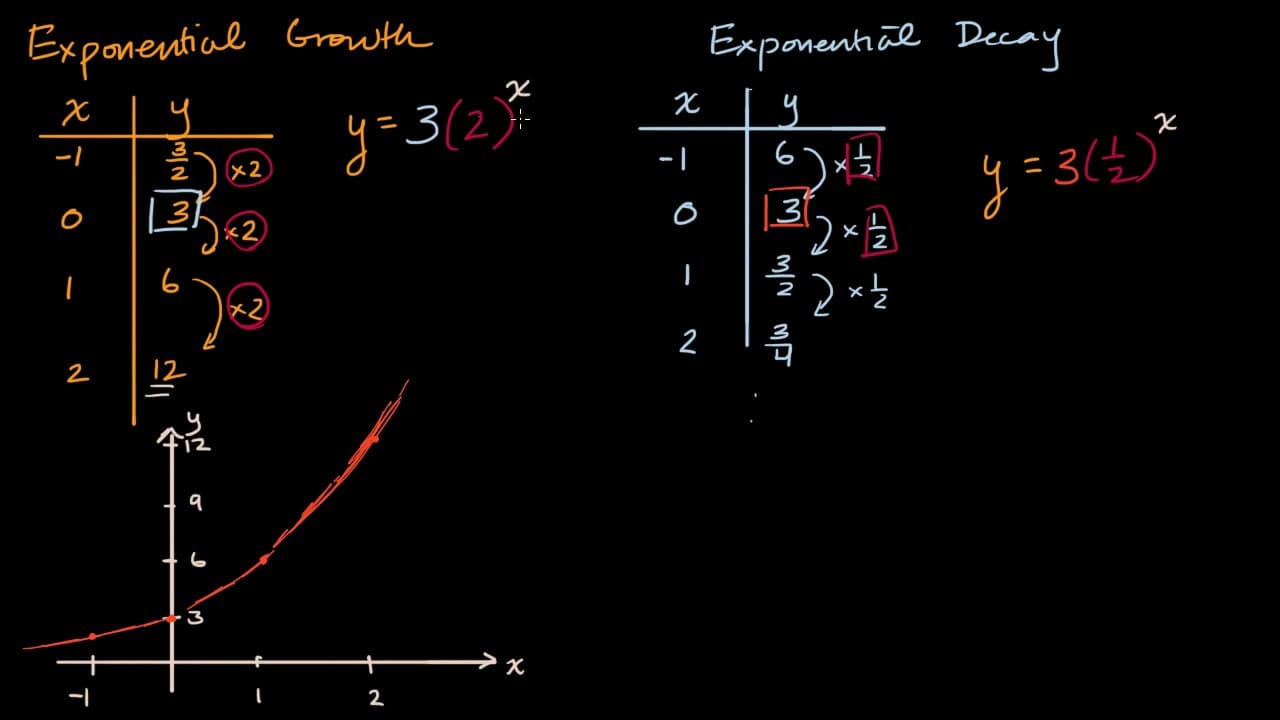 Exponential Growth
x y
-1 3/2 ×2
0 3 ×2
1 6 ×2
2 12
y = 3(2)^x
y
12
9
6
3
-1 1 2 x
Exponential Decay
x y
-1 6 × 1/2
0 3 × 1/2
1 3/2 × 1/2
2 3/4
y = 3(1/2)^x